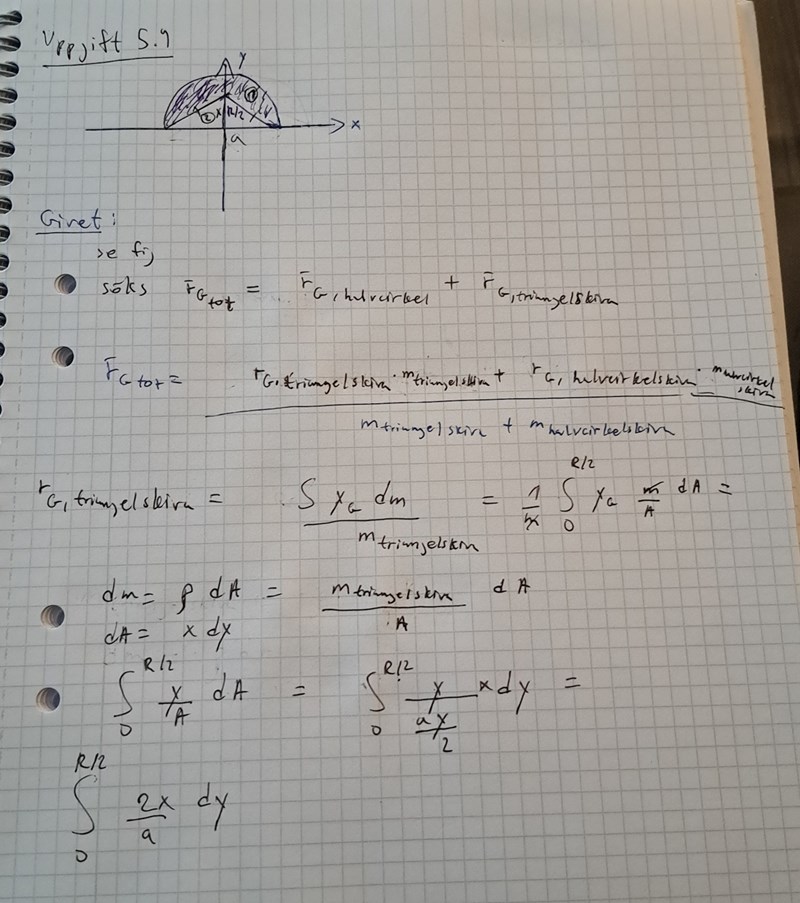 Uppgift 5.9
y
①
② x R/2
x
a
Givet:
se fig
söks r̄_G tot = r̄_G, halvcirkel + r̄_G, triangelskiva
r̄_G tot = (r_G, triangelskiva · m_triangelskiva + r_G, halvcirkelskiva · m_halvcirkelskiva) / (m_triangelskiva + m_halvcirkelskiva)
r_G, triangelskiva = ∫ y_G dm / m_triangelskiva = 1/m ∫_0^{R/2} y_G m/A dA =
dm = ρ dA = m_triangelskiva / A dA
dA = x dy
∫_0^{R/2} y/A dA = ∫_0^{R/2} y / (ay/2) x dy =
∫_0^{R/2} 2x/a dy